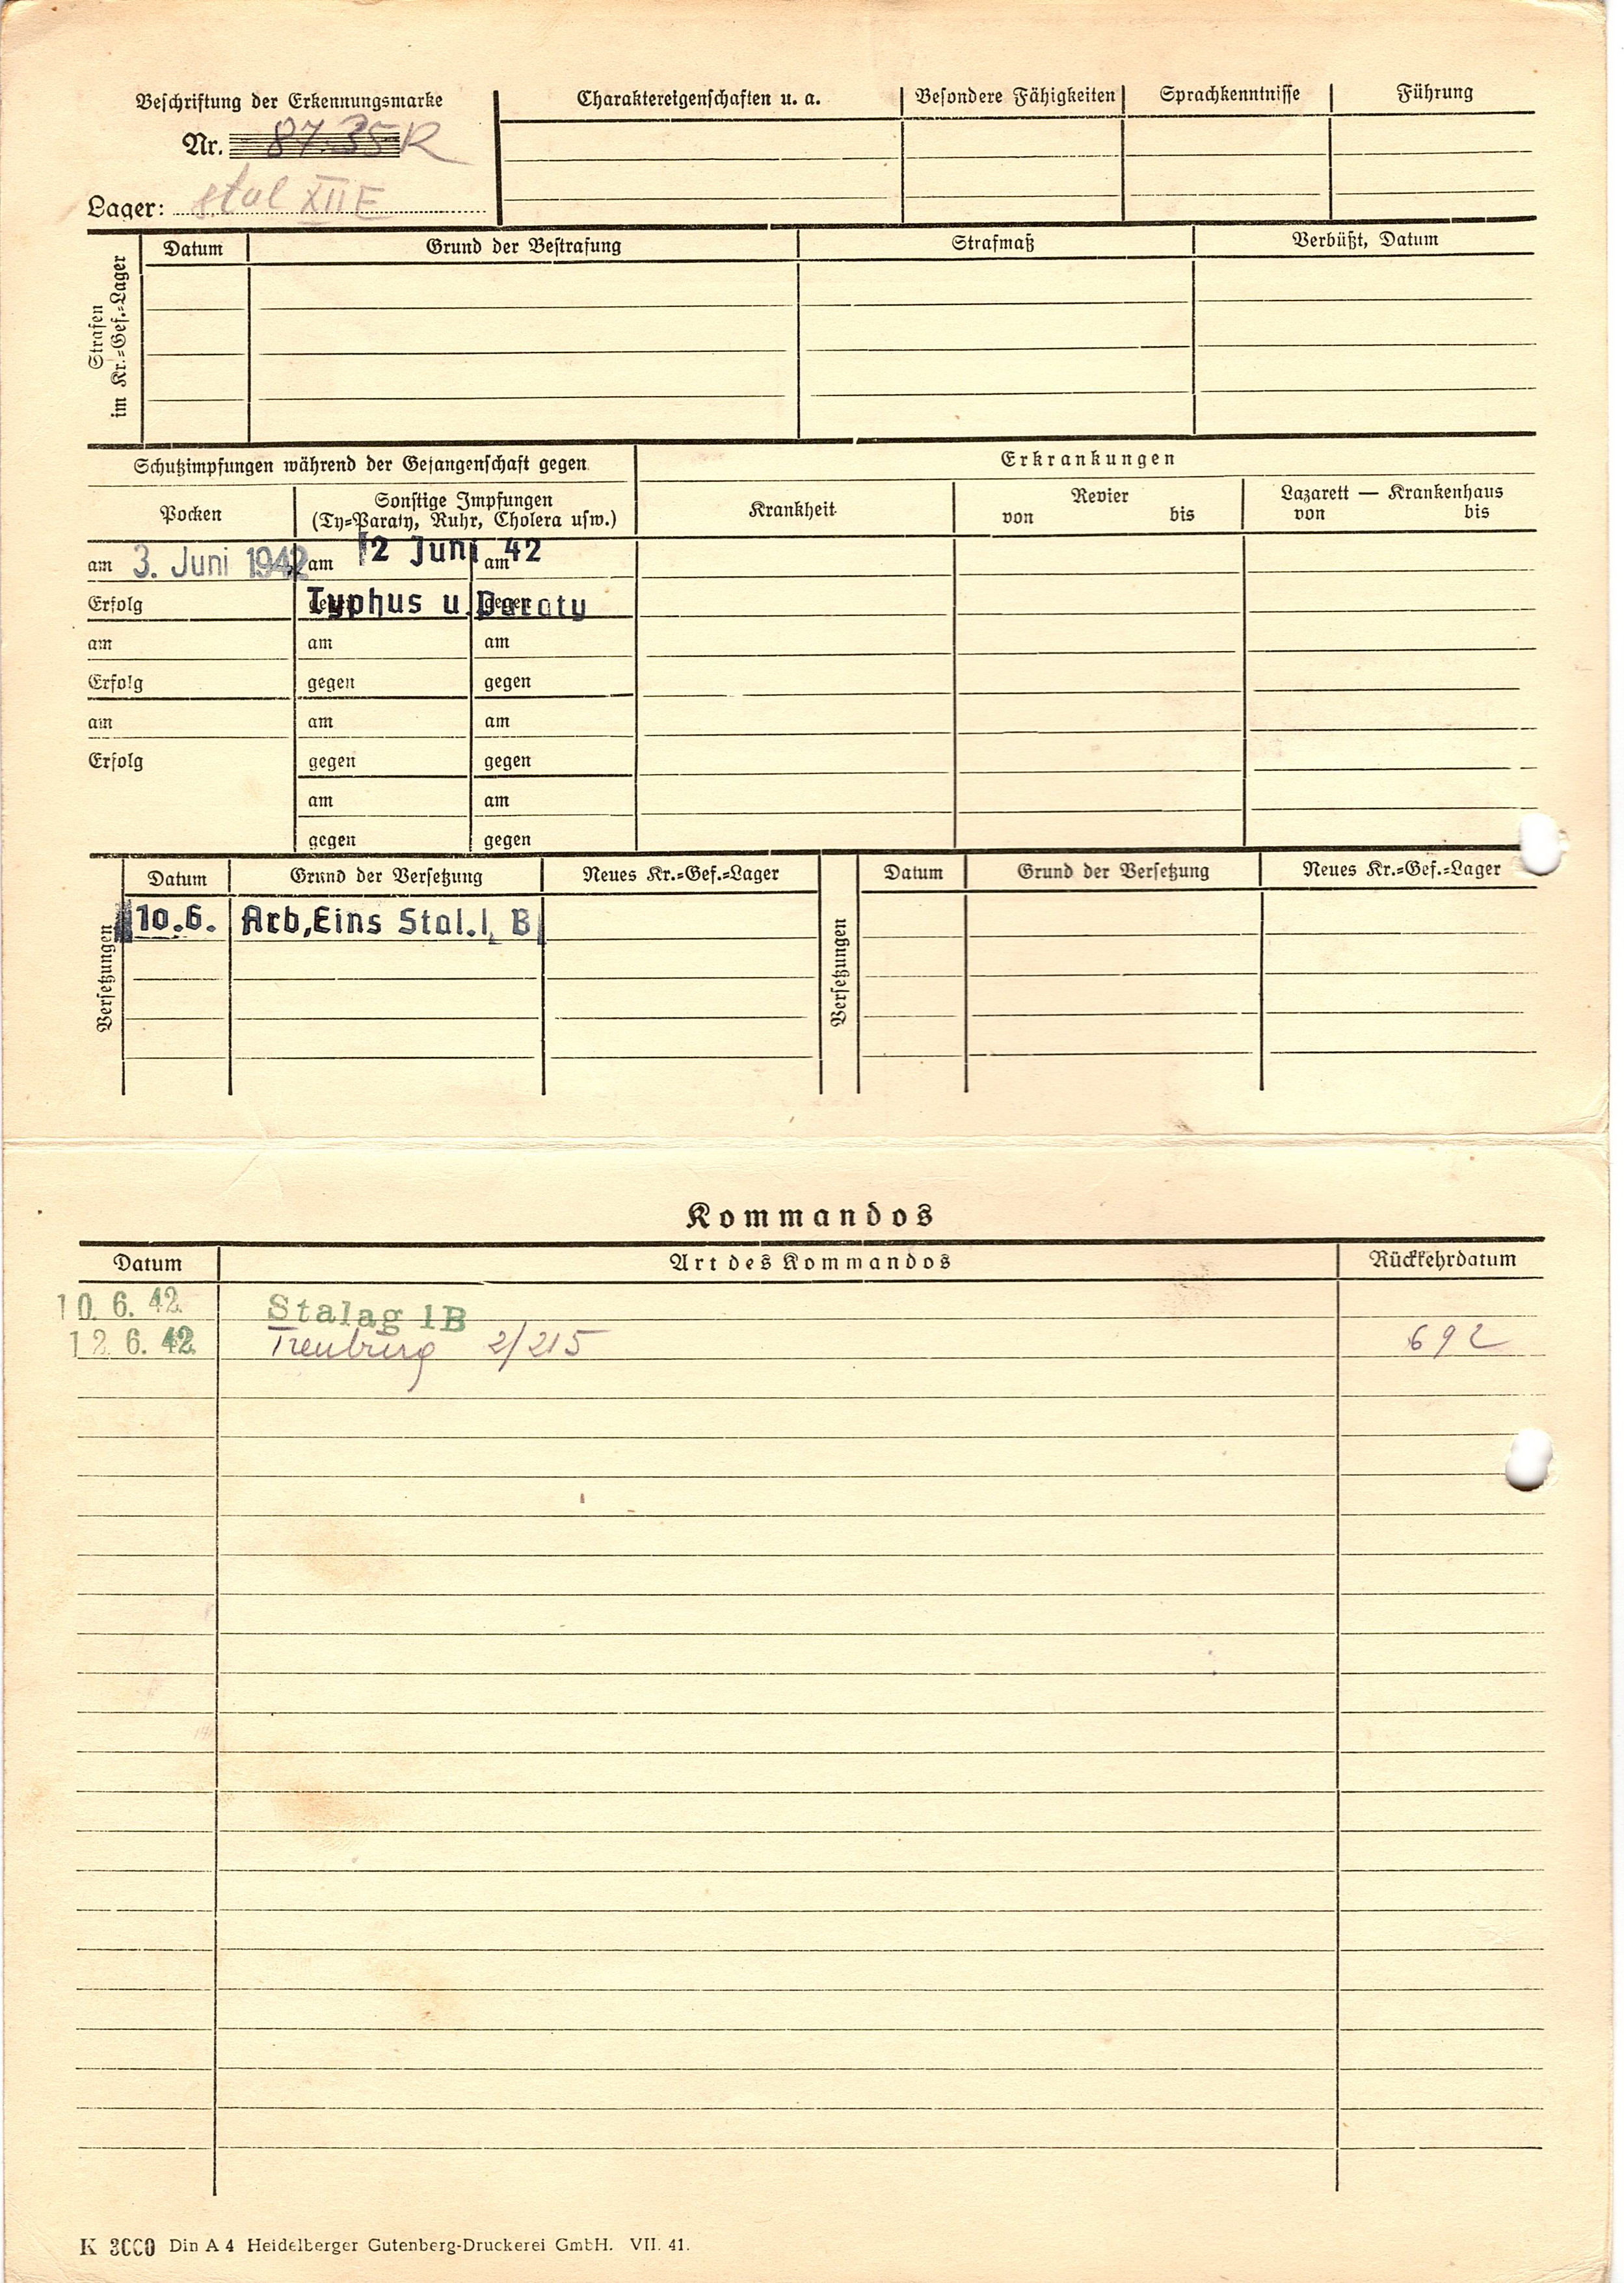 Beschriftung der Erkennungsmarke
Nr. 8735 R
Lager: Stal XII E
Charaktereigenschaften u. a. Besondere Fähigkeiten Sprachkenntnisse Führung
Strafen
im Kr.=Gef.=Lager
Datum Grund der Bestrafung Strafmaß Verbüßt, Datum
Schutzimpfungen während der Gefangenschaft gegen Erkrankungen
Pocken Sonstige Impfungen
(Ty=Paraty, Ruhr, Cholera usw.) Krankheit Revier Lazarett — Krankenhaus
von bis von bis
am 3. Juni 1942 am 2 Juni am 42
Erfolg gegen Typhus u. gegen Paraty
am am am
Erfolg gegen gegen
am am am
Erfolg gegen gegen
am am
gegen gegen
Versetzungen
Datum Grund der Versetzung Neues Kr.=Gef.=Lager
10.6. Arb,Eins Stal.I, B
Versetzungen
Datum Grund der Versetzung Neues Kr.=Gef.=Lager
Kommandos
Datum Art des Kommandos Rückkehrdatum
10. 6. 42 Stalag 1B
12. 6. 42 Treuburg 2/215 692
K 3000 Din A 4 Heidelberger Gutenberg-Druckerei GmbH. VII. 41.